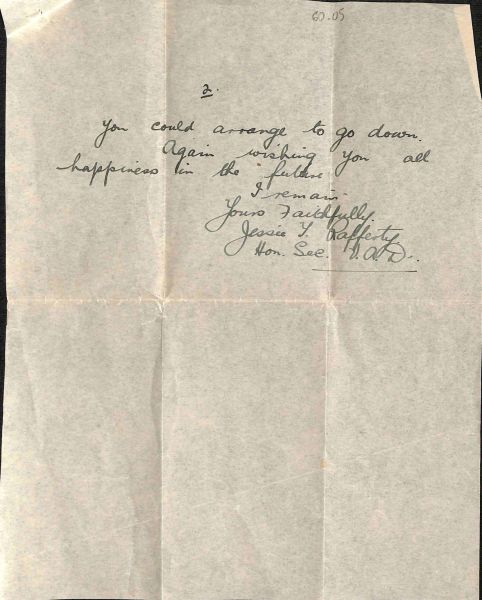 63.05
2.
You could arrange to go down.
Again wishing you all
happiness in the future
I remain
Yours Faithfully.
Jessie T. Rafferty
Hon. Sec. V.A.D.